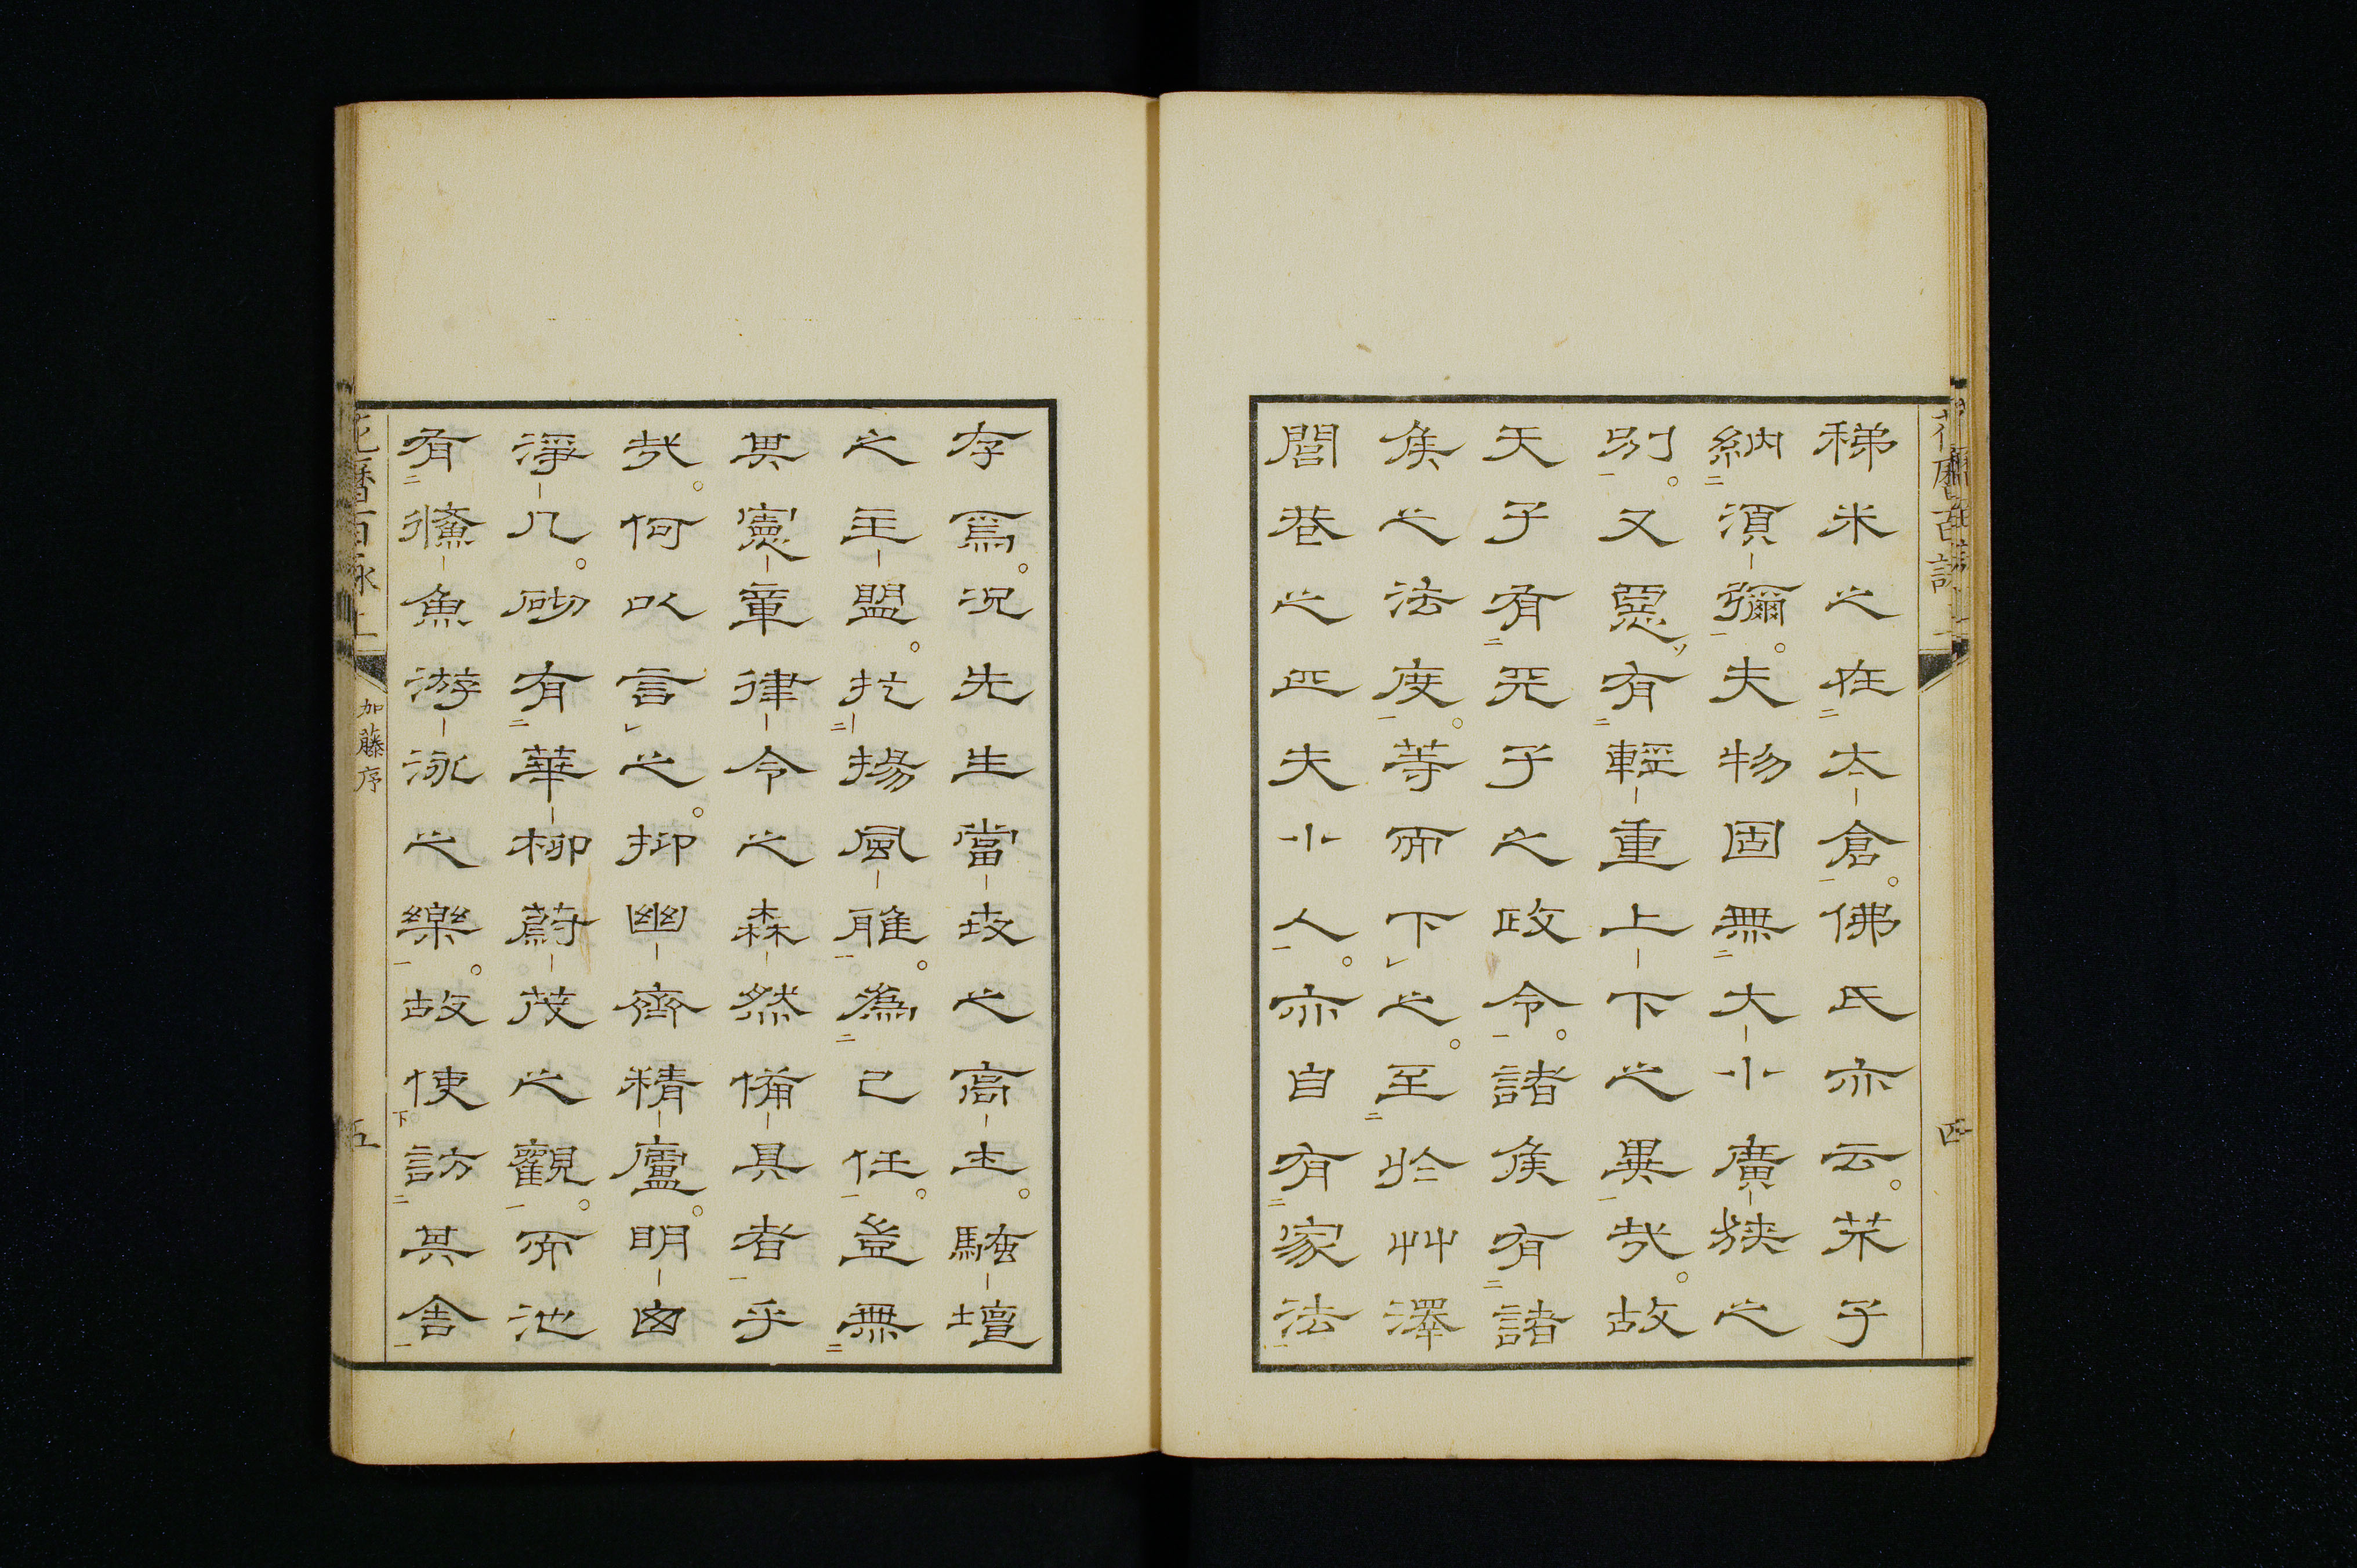 稊米之在太倉。佛氏亦云。芥子
納須彌。夫物固無大小廣狹之
別。又惡有輕重上下之異哉。故
天子有天子之政令。諸侯有諸
侯之法度。等而下之。至於艸澤
閭巷之匹夫小人。亦自有家法
四
存焉。况先生當世之高士。騷壇
之主盟。扢揚風雅。為己任。豈無
其憲章律令之森然備具者乎
哉。何以言之。抑幽齊精廬。明囪
淨几。砌有華柳蔚茂之觀。而池
有鯈魚游泳之樂。故使訪其舍
花曆百詠上
加藤序
五